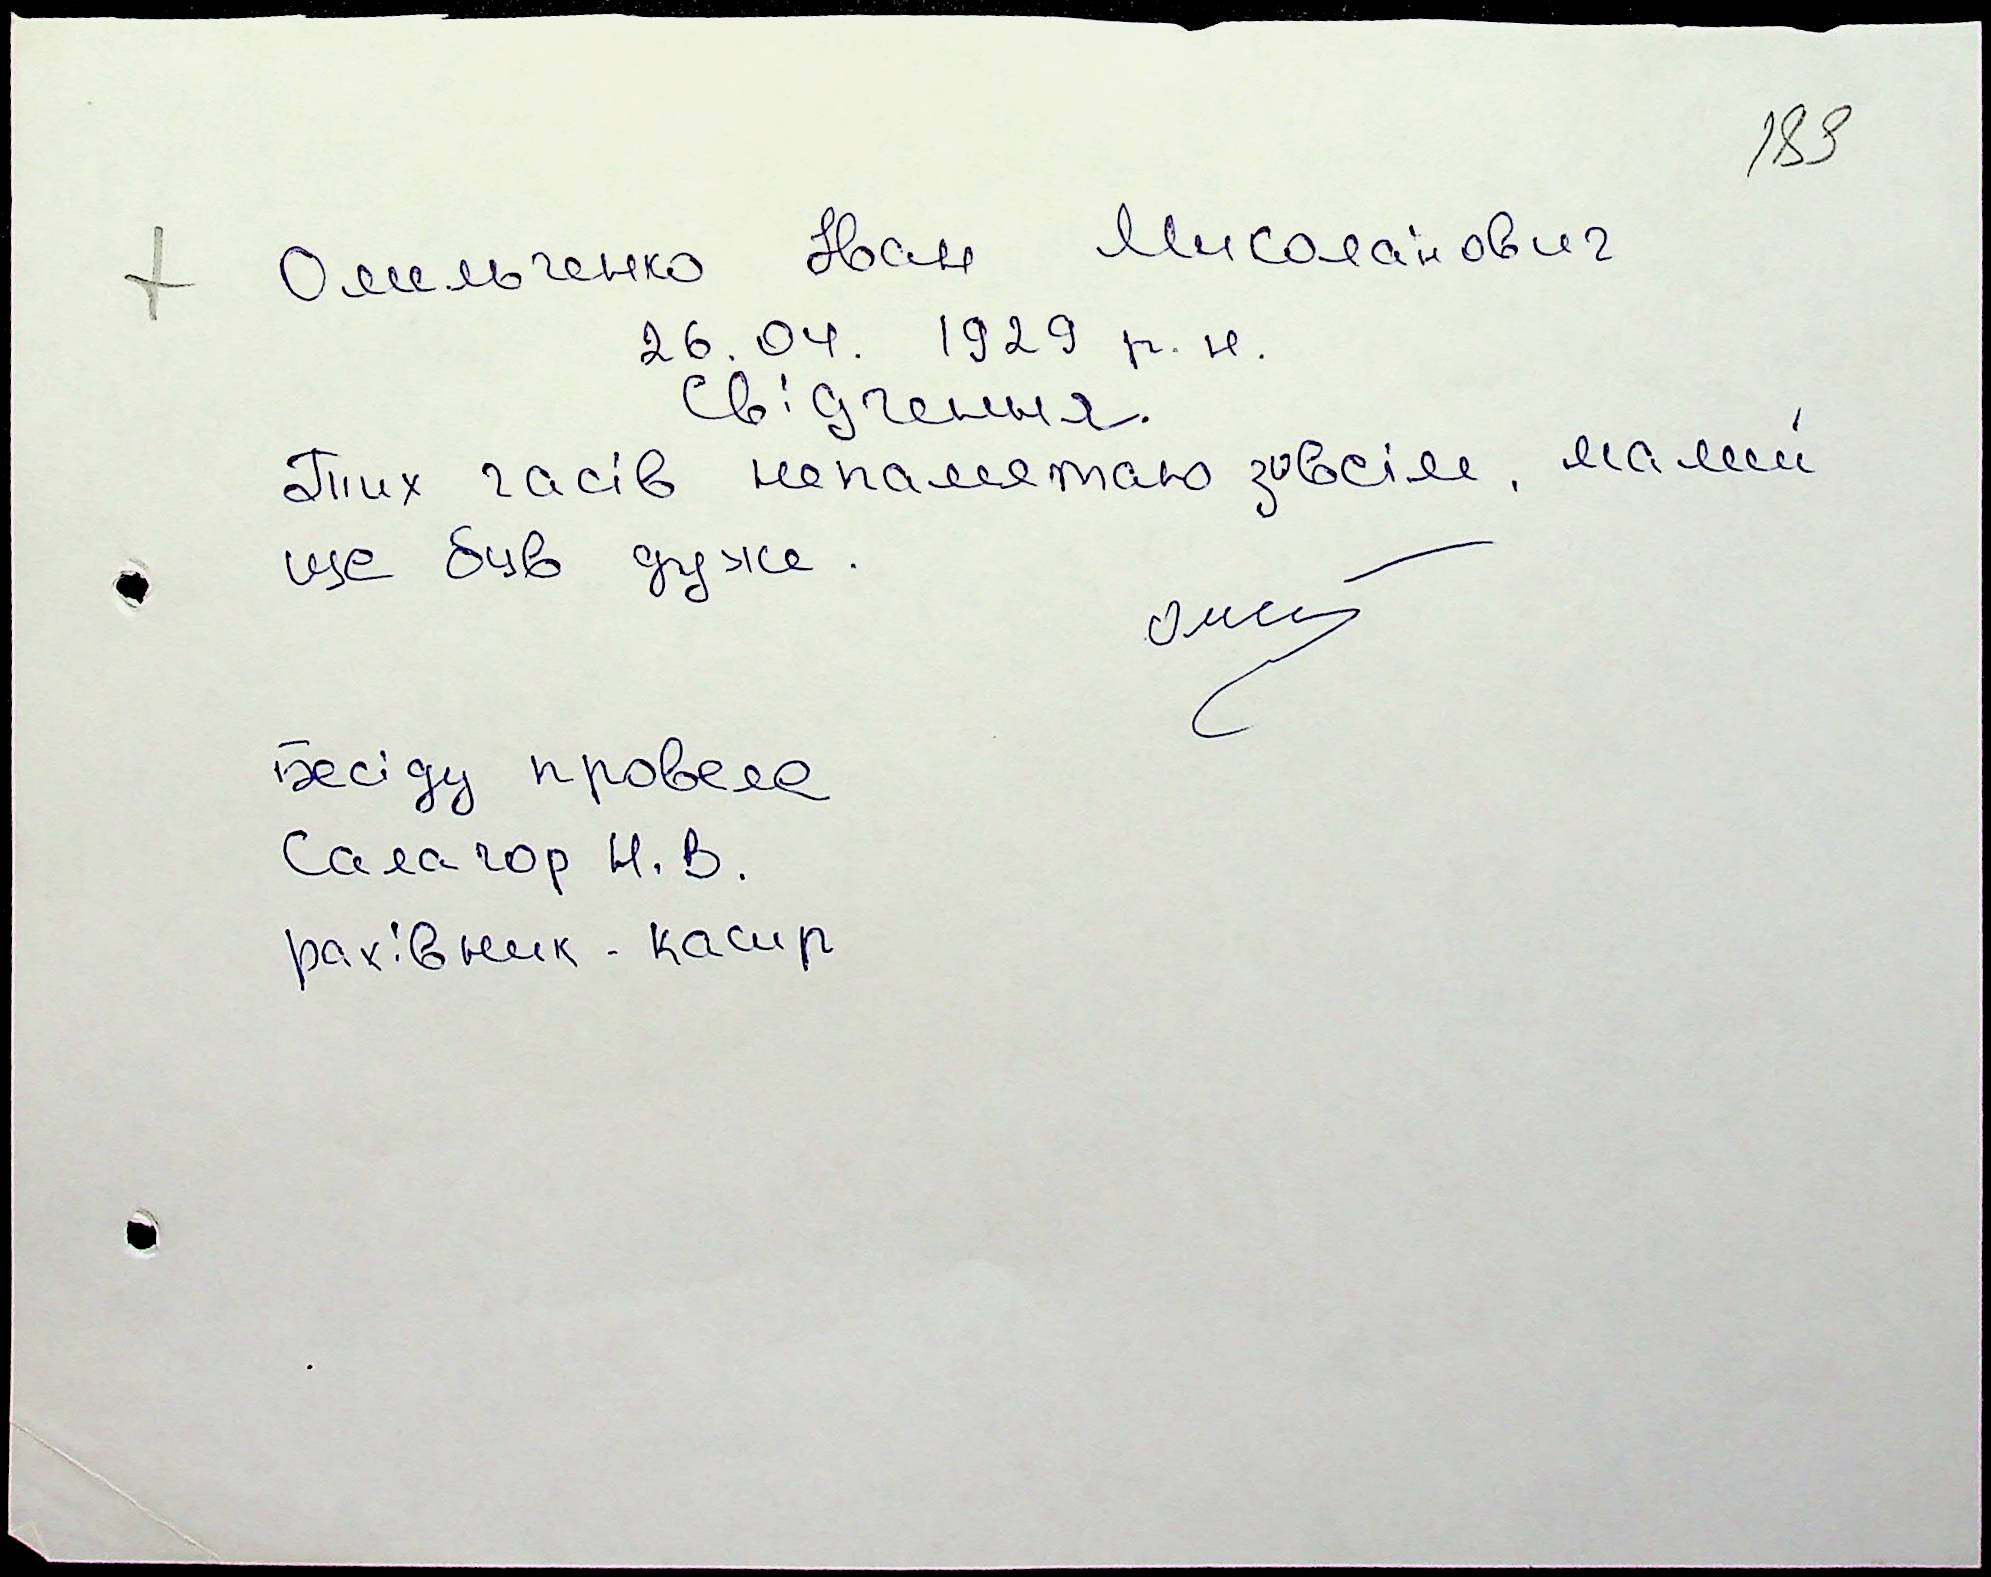 183
+ Омельченко Іван Миколайович
26.04. 1929 р.н.
Свідчення.
Тих часів непамятаю зовсім, малий
ще був дуже.
Бесіду провела
Салагор Н.В.
рахівник-касир